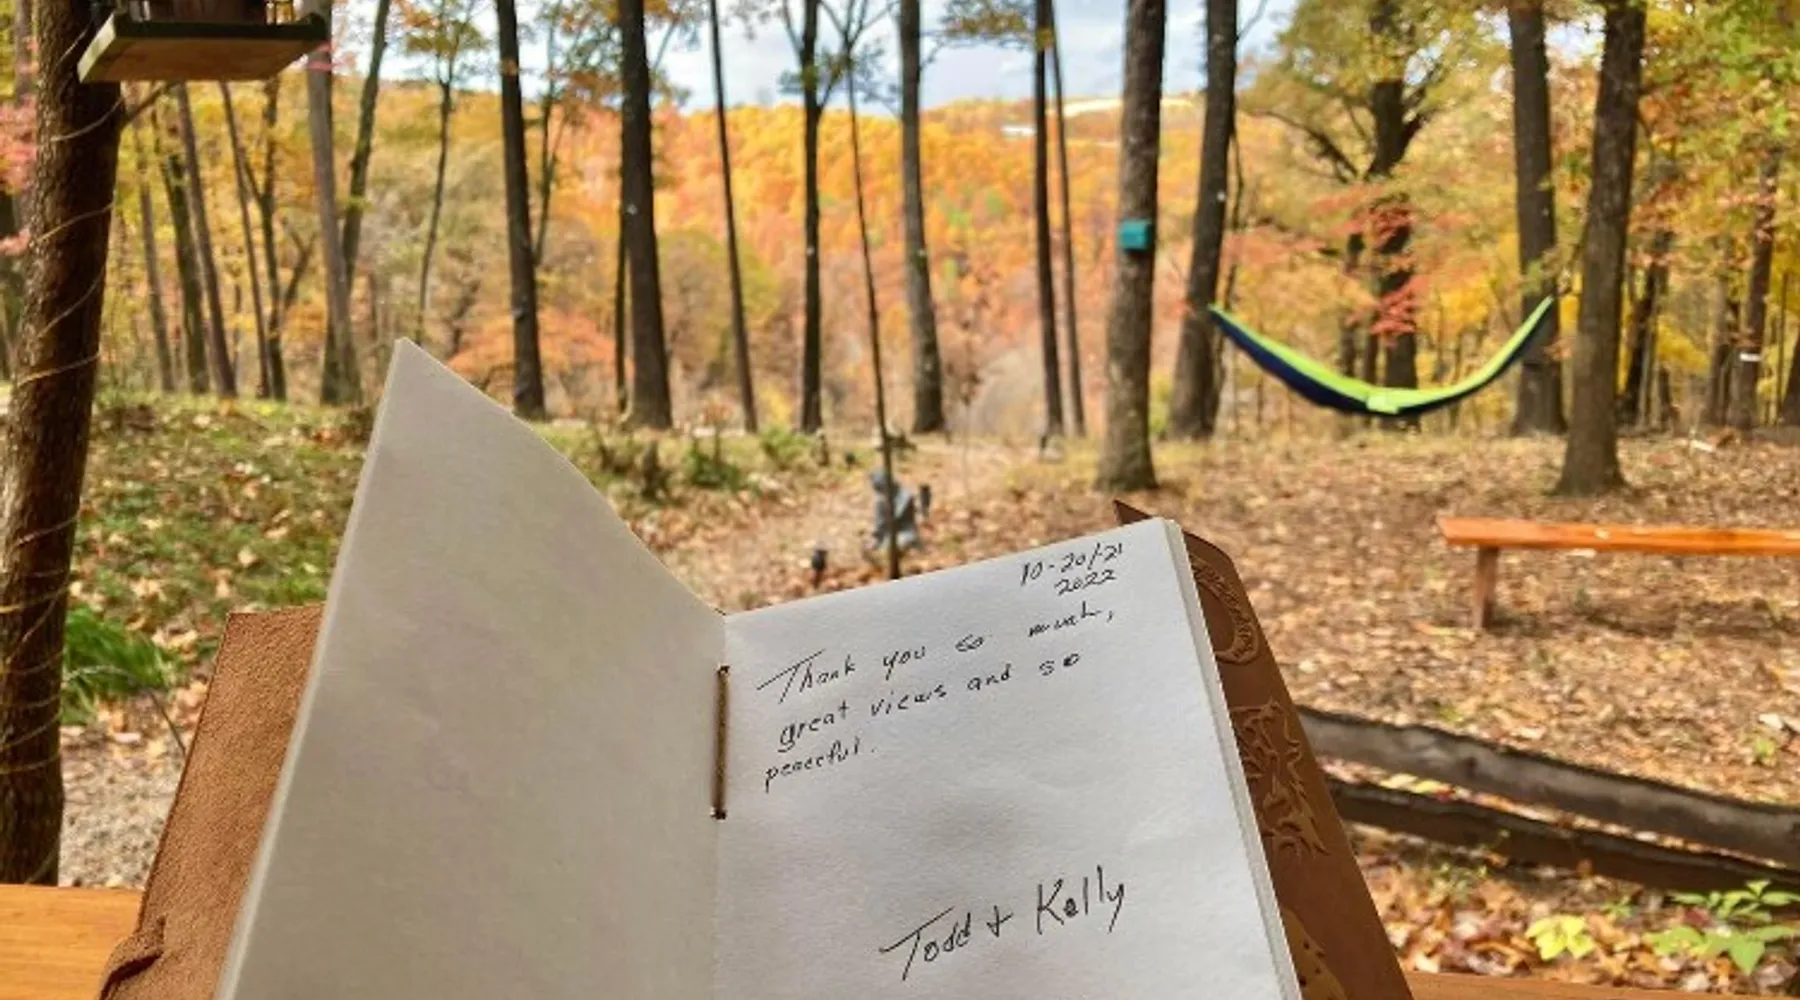 10-20/21
2022
Thank you so much,
great views and so
peaceful.
Todd + Kelly